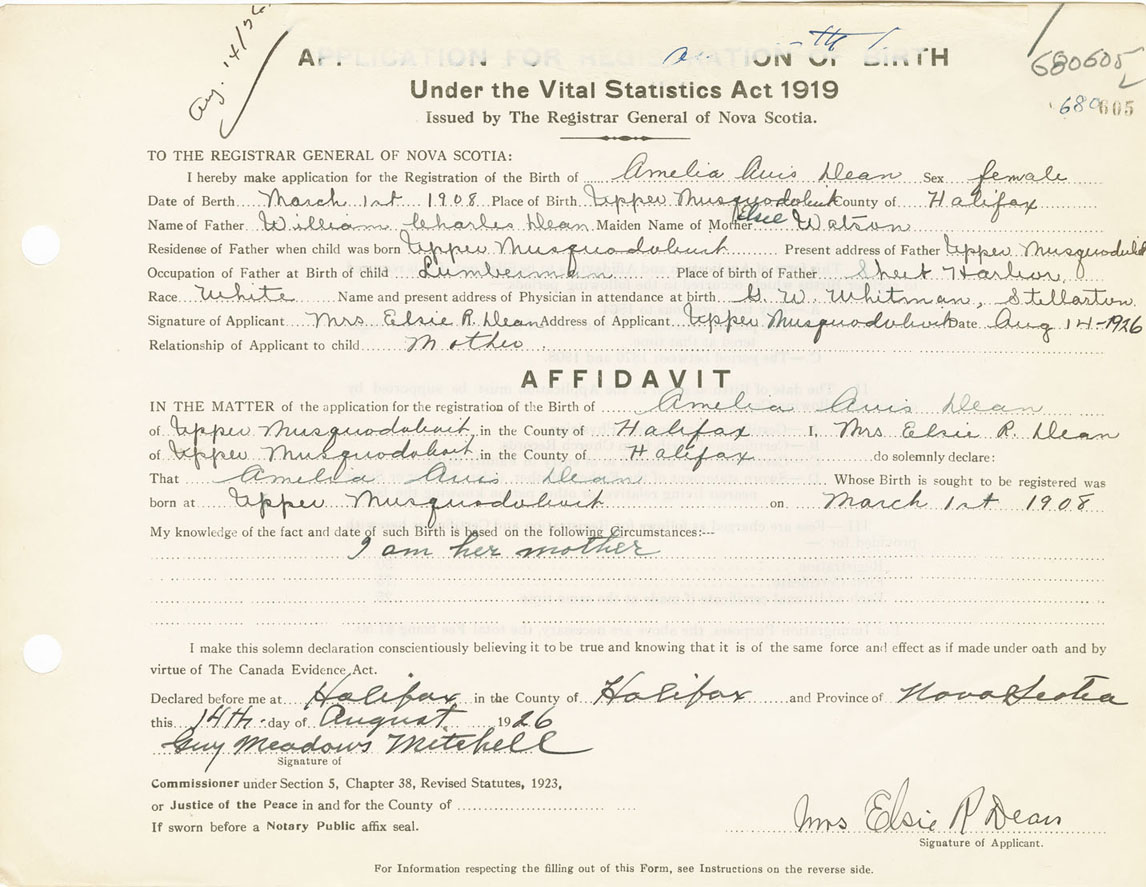 Aug. 14/26
680605
680605
APPLICATION FOR REGISTRATION OF BIRTH
Under the Vital Statistics Act 1919
Issued by The Registrar General of Nova Scotia.
TO THE REGISTRAR GENERAL OF NOVA SCOTIA:
I hereby make application for the Registration of the Birth of Amelia Avis Dean Sex female
Date of Berth March 1st 1908 Place of Birth Upper Musquodoboit County of Halifax
Name of Father William Charles Dean Maiden Name of Mother Elsie Watson
Residense of Father when child was born Upper Musquodoboit Present address of Father Upper Musquodoboit
Occupation of Father at Birth of child Lumberman Place of birth of Father Sheet Harbor
Race White Name and present address of Physician in attendance at birth G. W. Whitman, Stellarton
Signature of Applicant Mrs Elsie R. Dean Address of Applicant Upper Musquodoboit Date Aug 14-1926
Relationship of Applicant to child Mother
AFFIDAVIT
IN THE MATTER of the application for the registration of the Birth of Amelia Avis Dean
of Upper Musquodoboit, in the County of Halifax I, Mrs Elsie R. Dean
of Upper Musquodoboit, in the County of Halifax do solemnly declare:
That Amelia Avis Dean Whose Birth is sought to be registered was
born at Upper Musquodoboit on March 1st 1908
My knowledge of the fact and date of such Birth is based on the following Circumstances:---
I am her mother
I make this solemn declaration conscientiously believing it to be true and knowing that it is of the same force and effect as if made under oath and by
virtue of The Canada Evidence Act.
Declared before me at Halifax in the County of Halifax and Province of Nova Scotia
this 14th day of August 1926
Guy Meadows Mitchell
Signature of
Commissioner under Section 5, Chapter 38, Revised Statutes, 1923,
or Justice of the Peace in and for the County of
If sworn before a Notary Public affix seal.
Mrs Elsie R Dean
Signature of Applicant.
For Information respecting the filling out of this Form, see Instructions on the reverse side.